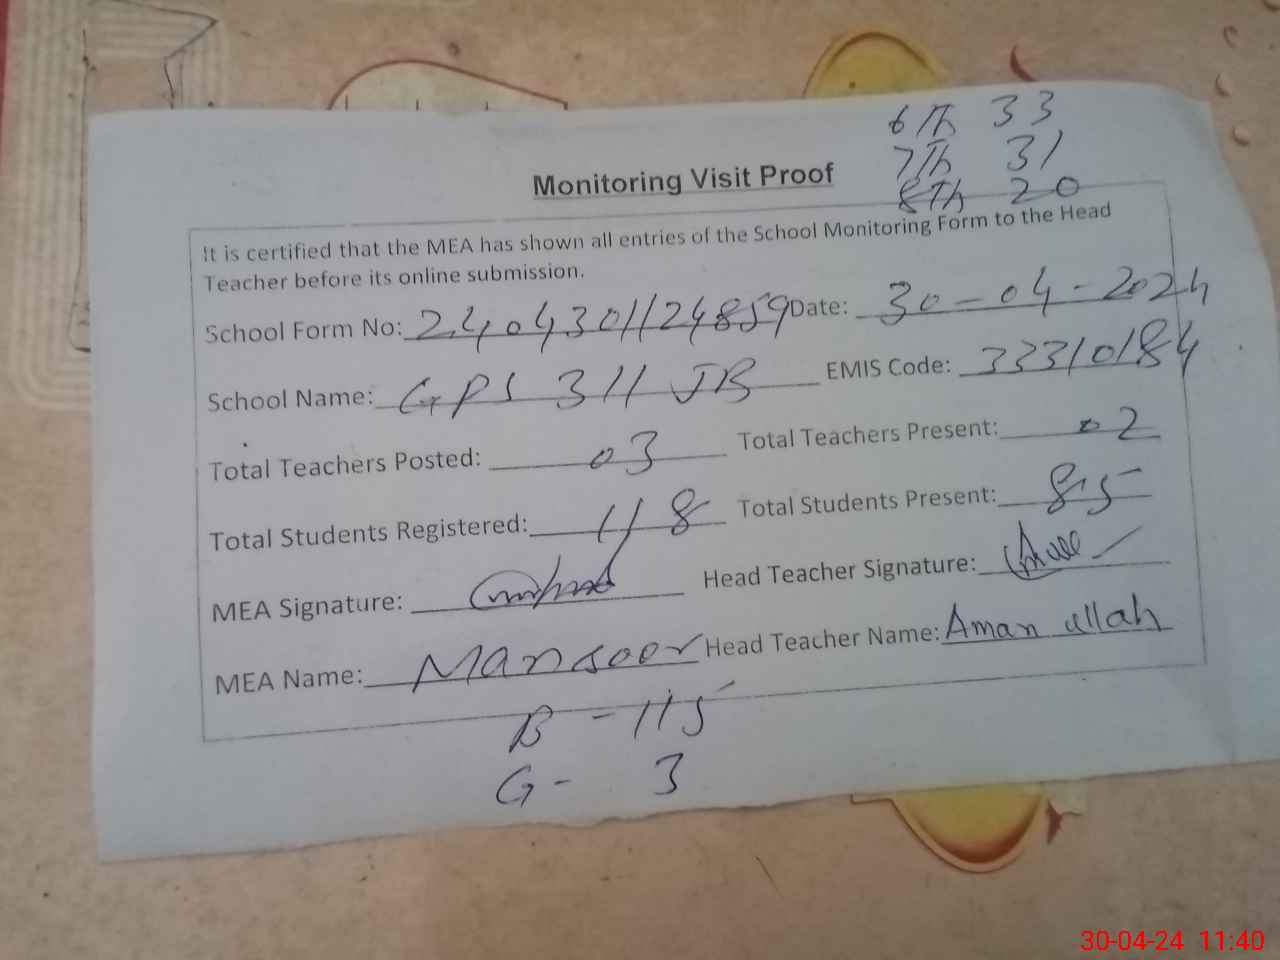 6Th 33
7Th 31
8Th 20
Monitoring Visit Proof
It is certified that the MEA has shown all entries of the School Monitoring Form to the Head
Teacher before its online submission.
School Form No: 2404301124859 Date: 30-04-2024
School Name: GPS 311 JB EMIS Code: 33310184
Total Teachers Posted: 03 Total Teachers Present: 02
Total Students Registered: 118 Total Students Present: 85
MEA Signature: Head Teacher Signature:
MEA Name: Mansoor Head Teacher Name: Aman ullah
B - 115
G - 3
30-04-24 11:40